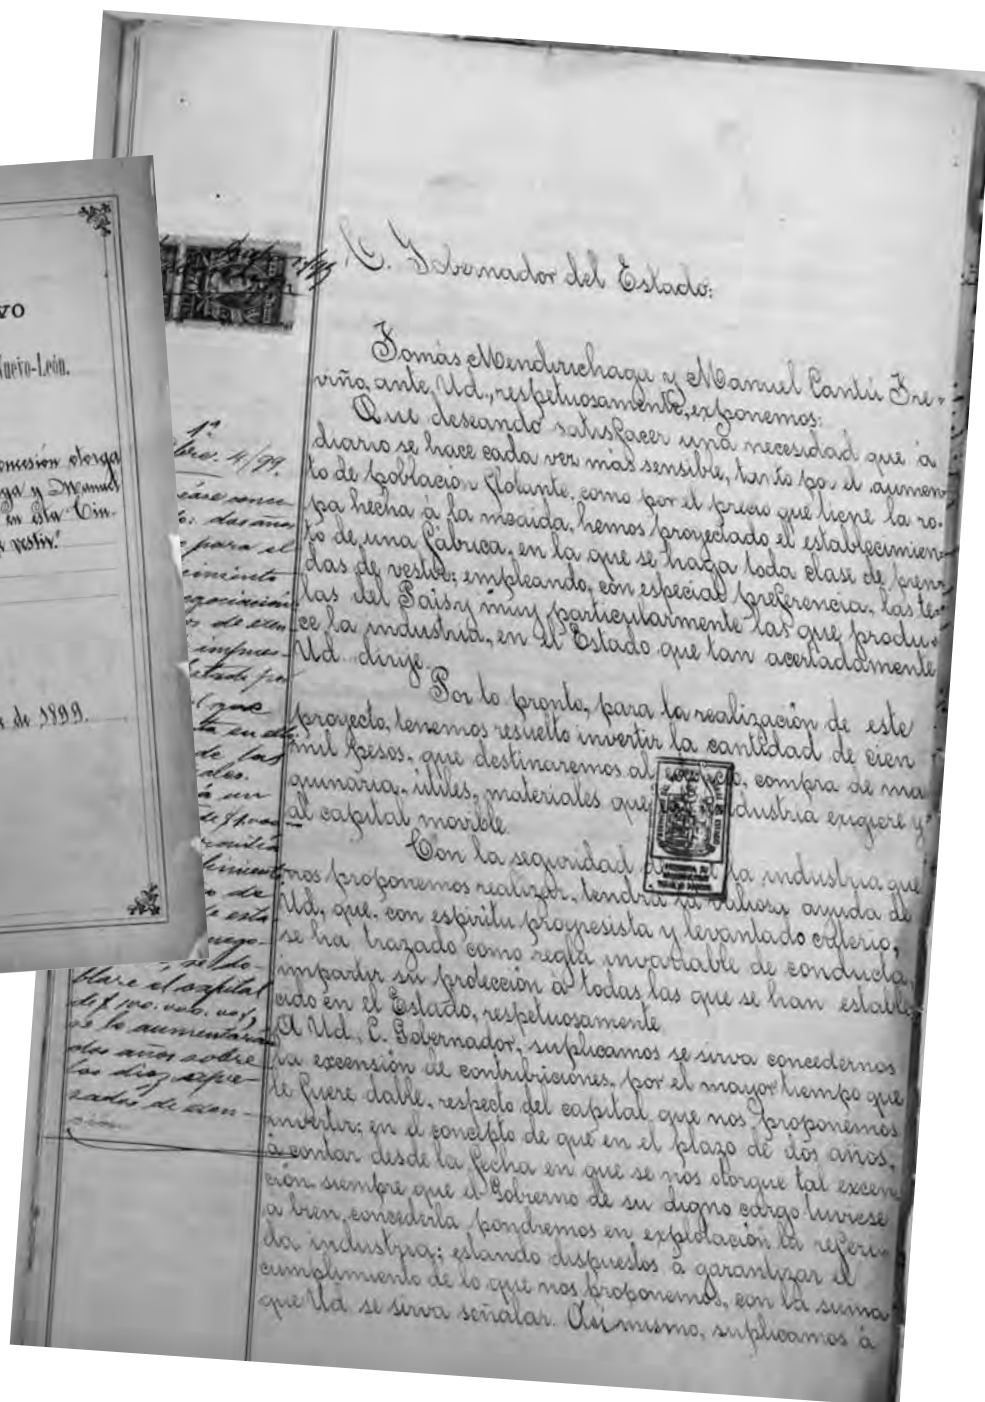 vo
Nuevo-León.
oncesión otorga
ga y Manuel
en esta Ciu-
vestir."
de 1899.
C. Gobernador del Estado:
Tomás Mendirichaga y Manuel Cantú Tre-
viño, ante Ud., respetuosamente, exponemos:
Que deseando satisfacer una necesidad que á
diario se hace cada vez más sensible, tanto por el aumen
to de poblacion flotante, como por el precio que tiene la ro-
pa hecha á la medida, hemos proyectado el establecimien-
to de una fábrica, en la que se haga toda clase de pren
das de vestir; empleando, con especial preferencia, las te-
las del Pais y muy particularmente las que produ-
ce la industria, en el Estado que tan acertadamente
Ud. dirije.
Por lo pronto, para la realización de este
proyecto, tenemos resuelto invertir la cantidad de cien
mil pesos, que destinaremos al compra de ma
quinaria, útiles, materiales que industria exigiere y
al capital movible.
Con la seguridad la industria que
nos proponemos realizar, tendrá la valiosa ayuda de
Ud., que, con espíritu progresista y levantado criterio,
se ha trazado como regla invariable de conducta,
impartir su protección á todas las que se han estable
cido en el Estado, respetuosamente
A Ud., C. Gobernador, suplicamos se sirva concedernos
la excensión de contribuciones, por el mayor tiempo que
le fuere dable, respecto del capital que nos proponemos
invertir; en el concepto de que en el plazo de dos años,
á contar desde la fecha en que se nos otorgue tal excen
ción siempre que el Gobierno de su digno cargo tuviese
a bien, concederla pondremos en explotación la referi-
da industria; estando dispuestos á garantizar el
cumplimiento de lo que nos proponemos, con la suma
que Ud se sirva señalar. Asi mismo, suplicamos á
1º
bre. 4/99.
dos años
para el
de exen
impues-
que
en el
de las
un
de
de esta
nego-
se do-
blare el capital
se lo aumentará
dos años sobre
los diez expre-
sados de exen-